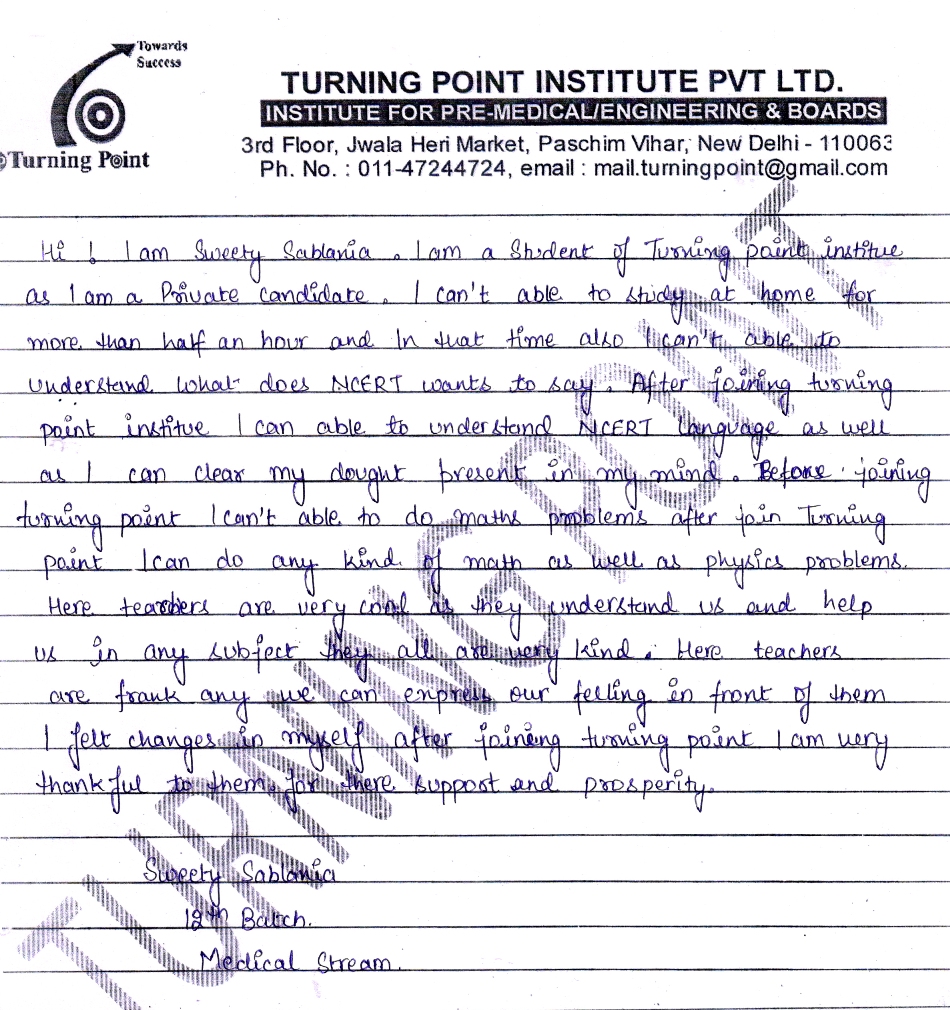 Towards
Success
Turning Point
TURNING POINT INSTITUTE PVT LTD.
INSTITUTE FOR PRE-MEDICAL/ENGINEERING & BOARDS
3rd Floor, Jwala Heri Market, Paschim Vihar, New Delhi - 110063
Ph. No. : 011-47244724, email : mail.turningpoint@gmail.com
Hi ! I am Sweety Sablania . I am a Student of Turning point institue
as I am a Private candidate . I can't able to study at home for
more than half an hour and In that time also I can't able to
understand what does NCERT wants to say . After joining turning
point institue I can able to understand NCERT language as well
as I can clear my dought present in my mind . Before joining
turning point I can't able to do maths problems after join Turning
point I can do any kind of math as well as physics problems.
Here teachers are very cool as they understand us and help
us in any subject they all are very kind . Here teachers
are frank any we can express our felling in front of them
I felt changes in myself after joining turning point I am very
thankful to them for there support and prosperity.
Sweety Sablania
12th Batch.
Medical Stream.
TURNING POINT